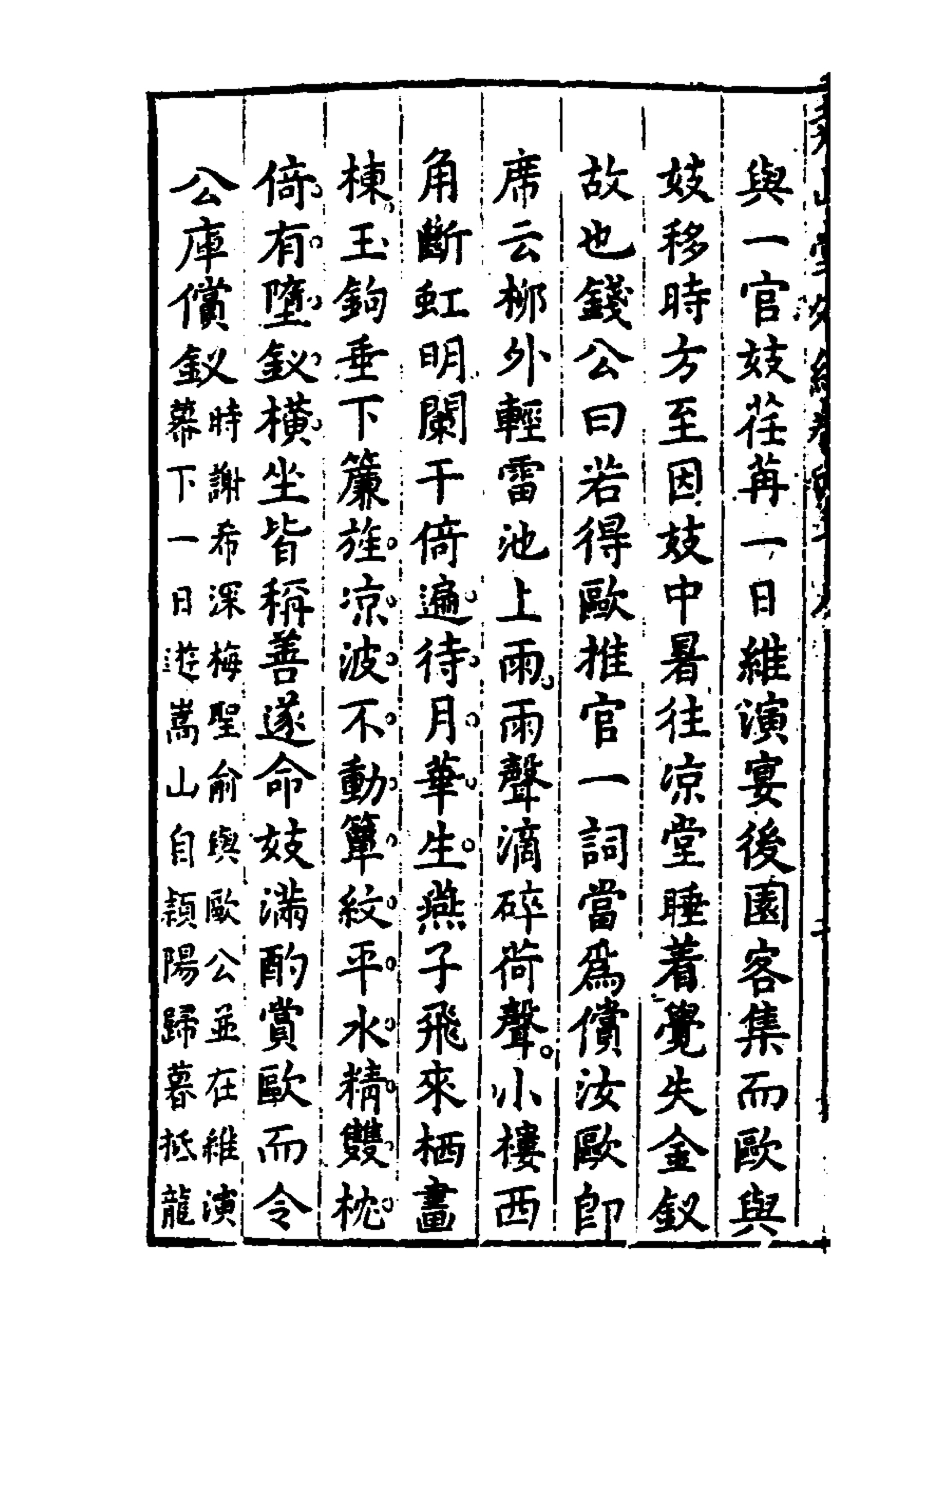 與一官妓荏苒一日維演宴後園客集而歐與
妓移時方至因妓中暑往凉堂睡着覺失金釵
故也錢公曰若得歐推官一詞當爲償汝歐卽
席云柳外輕雷池上雨。雨聲滴碎荷聲。小樓西
角斷虹明闌干倚遍待月華生燕子飛來栖畫
棟玉鉤垂下簾旌凉波不動簟紋平水精雙枕
倚有墮釵橫坐皆稱善遂命妓滿酌賞歐而令
公庫償釵
時謝希深梅聖俞與歐公並在維演
幕下一日遊嵩山自潁陽歸暮抵龍